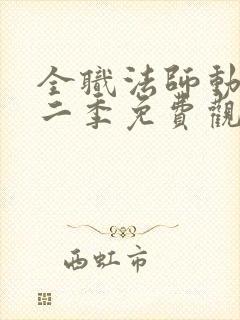 全職法師動
二季免費觀
西虹市